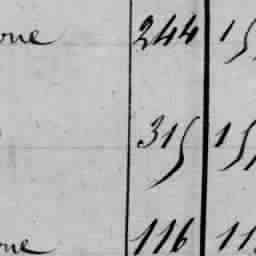 one 244 15
315 15
one 116 11